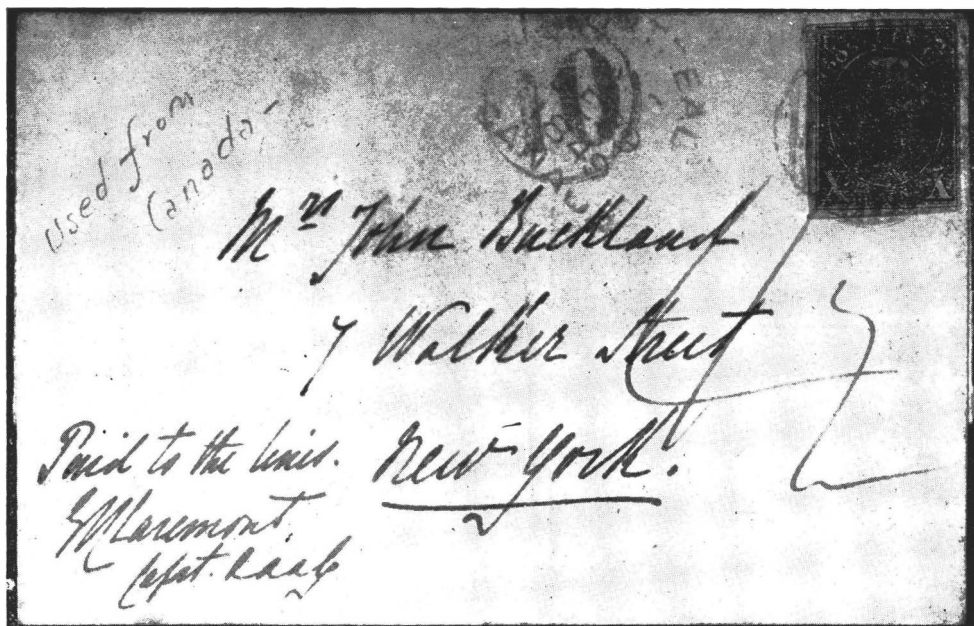 Used from
Canada -
10
EAL
CANADA
X X
Mrs John Buckland
7 Walker Street
New York.
Paid to the lines.
Capt.